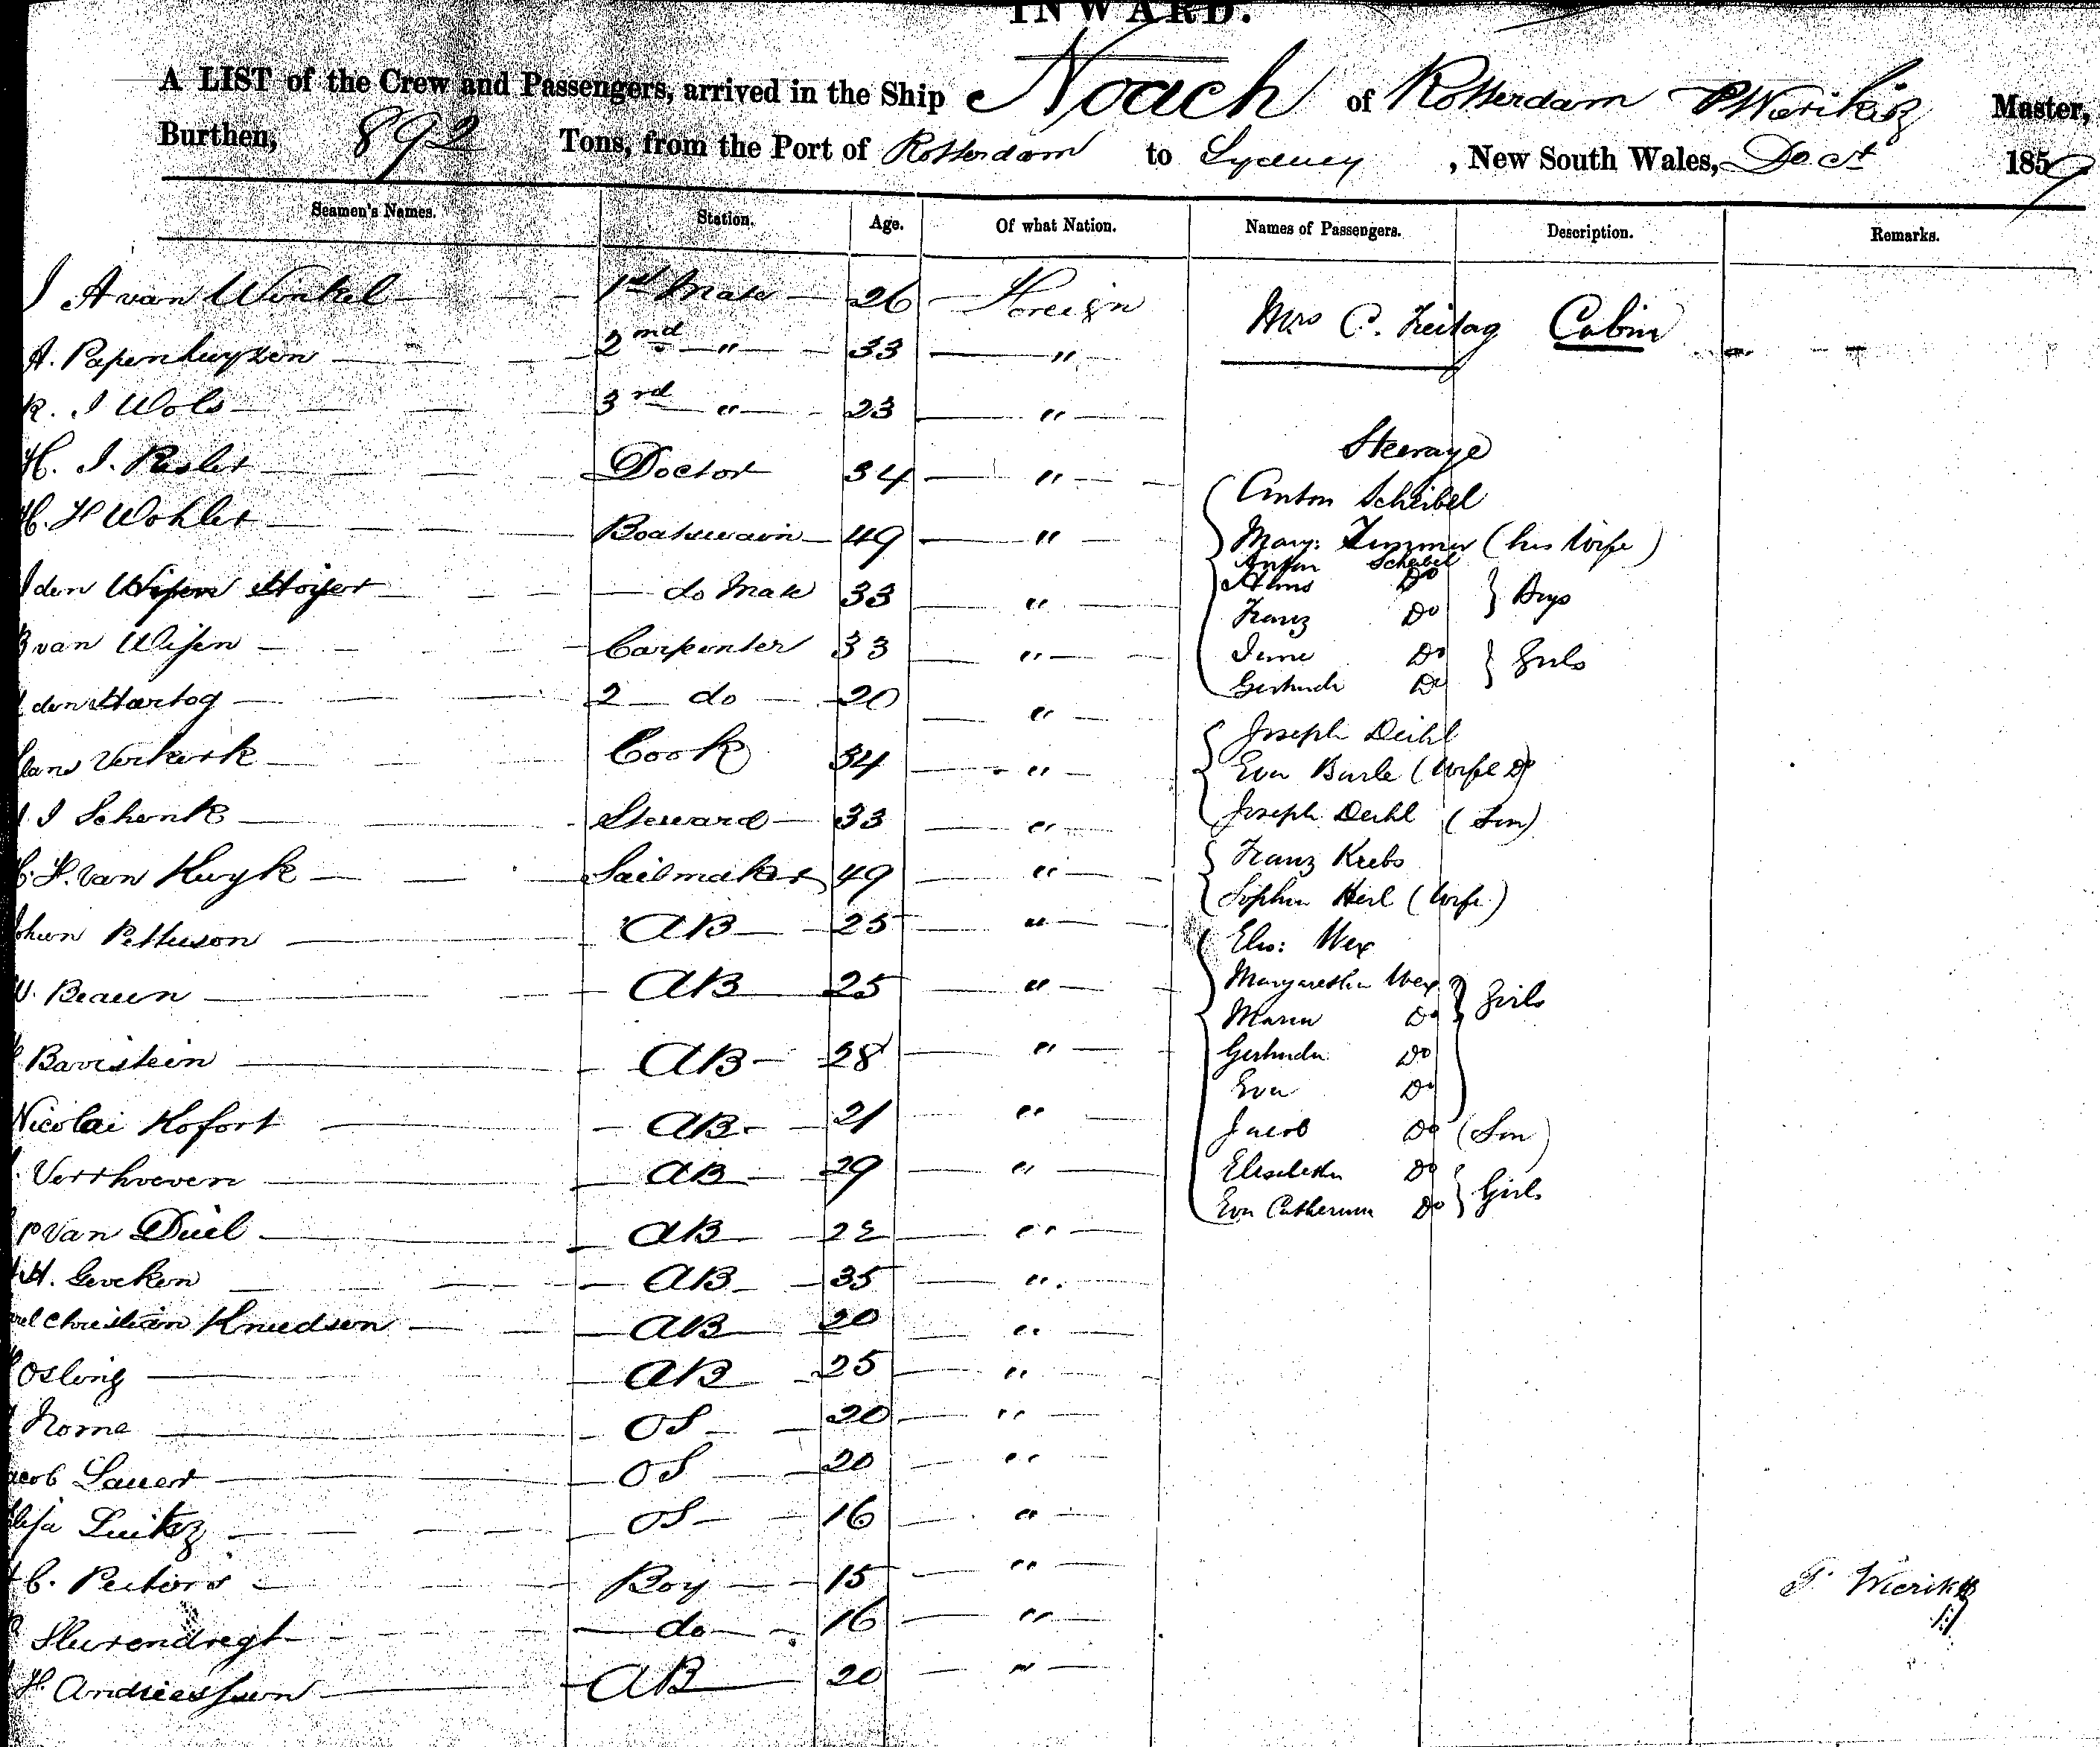 INWARD.
A LIST of the Crew and Passengers, arrived in the Ship Noach of Rotterdam P Wierikz Master,
Burthen, 892 Tons, from the Port of Rotterdam to Sydney, New South Wales, 1859
Seamen's Names. Station. Age. Of what Nation. Names of Passengers. Description. Remarks.
J A van Winkel 1st Mate 26 Foreign
Mrs C. Freitag Cabin
A. Papenhuyzen 2nd " 33 "
R. J Wols 3rd " 23 "
Steerage
H. J. Doctor 34 "
Anton Scheibel
H. H Wohler Boatswain 49 "
Mary: Zimmer (his wife)
Anton Scheibel
den do Mate 33 "
Do } Boys
Franz Do
van Wijen Carpenter 33 "
Do } Girls
Gertrude Do
den Hartog 2 do 20 "
Joseph Deihl
Verkerk Cook 34 "
Eva Burle (wife Do)
J Schenk Steward 33 "
Joseph Deihl (Son)
H. Van Kuyk Sailmaker 49 "
Franz Krebs
Sophia Heil (wife)
Petterson AB 25 "
Elis: Wex
Braun AB 25 "
Margaretha Wex } Girls
Maria Do
Bavistein AB 28 "
Gertruda Do
Eva Do
Nicolai Kofort AB 21 "
Jacob Do (Son)
Verrhoeven AB 29 "
Elisabetha Do } Girls
Eva Catherina Do
P Van Duel AB 22 "
H. Gevcken AB 35 "
Christian Knudsen AB 20 "
Osling AB 25 "
Norne OS 20 "
Sauer OS 20 "
Luitz OS 16 "
C. Peeters Boy 15 "
P. Wierikz
Slurendregt do 16 "
H. Andriessen AB 20 "